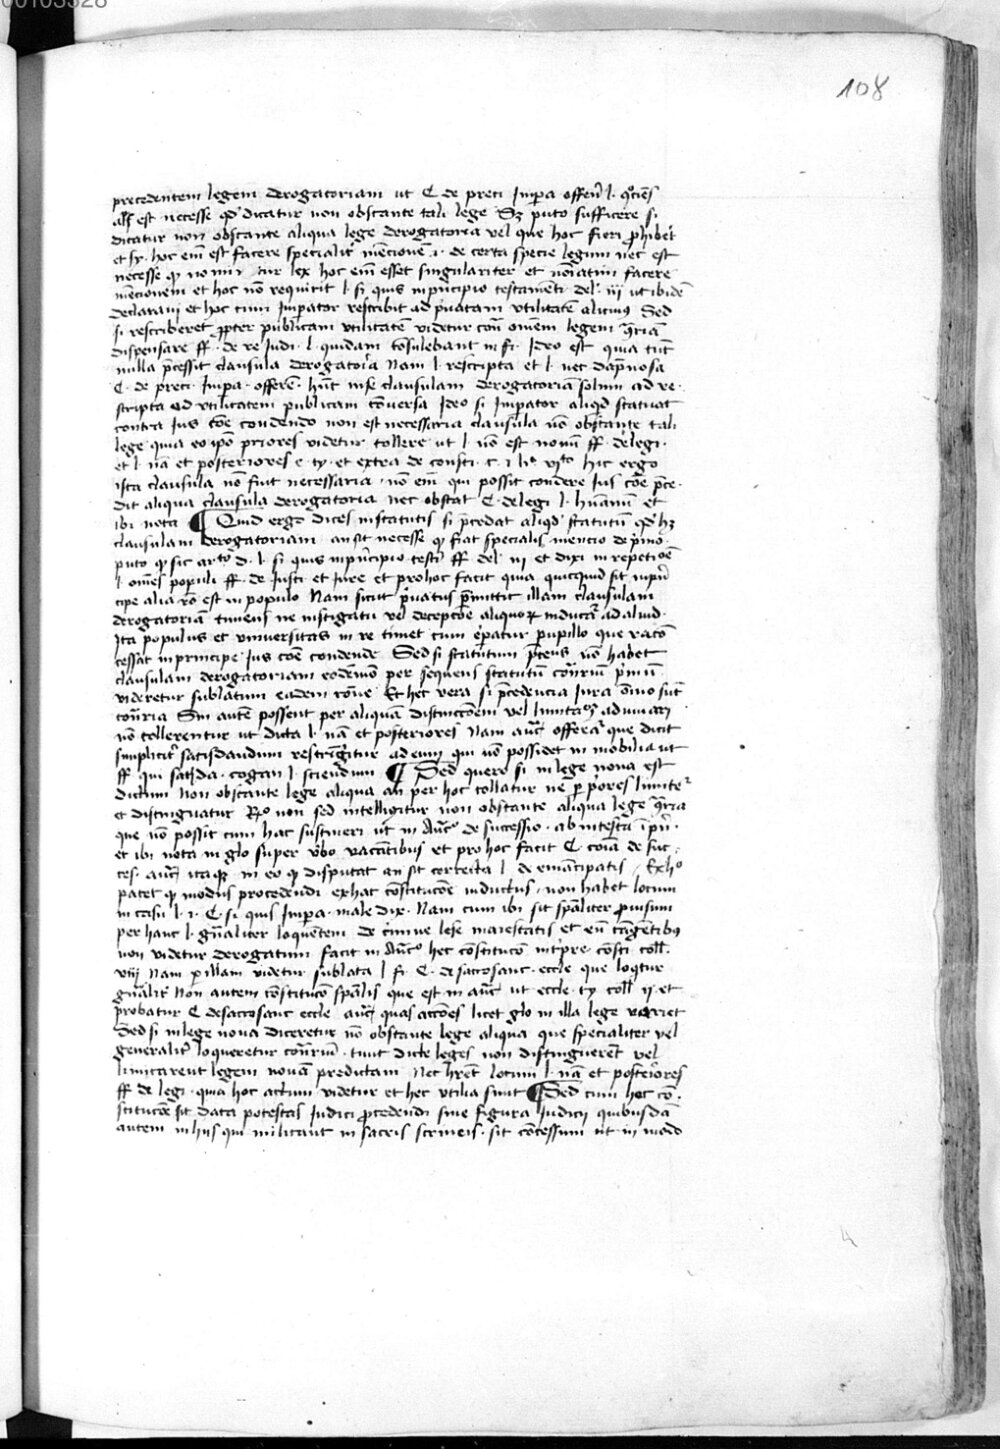 00103528
108
precedentem legem derogatoriam ut C de preci Impera offeren̄ l. quoc̄ies
als est necesse qd dicatur non obstante tali lege Sz puto sufficere si
dicatur non obstante aliqua lege derogatoria vel que hoc fieri p̱hibet
et hoc em̄ est facere specialit̄ mēcionē de certa specie legum nec est
necesse lex hoc em̄ esset singulariter et noīatim facere
mēcionem et hoc nō requirit l si quis in p̄ncipio testamēti del iii ut ibidē
declaraui et hoc cum Imperator rescribit ad p̄uatam vtilitatē alicuius Sed
si rescriberet p̱pter publicam vtilitatē videtur cont̄ om̄em legem
dispensare ff. de re Iudi. l. quidam consulebant in fi. Ideo est quia tūc
nulla p̄cessit clausula derogatoria Nam l rescripta et l. nec dāpnosa
C. de preci. Impa. offerē. hn̄t in se clausulam derogatoriā solum ad re
scripta ad vtilitatem publicam cōuersa Ideo si Imperator aliqd statuat
contra Ius cōe condendo non est necessaria clausula nō obstante tali
lege quia eo ip̄o priores videtur tollere ut l nō est nouū ff. de legi.
et l. nā et posteriores e. ty. et extra de consti. c. i li. vjto hic ergo
ista clausula nō fuit necessaria, nō em̄ qui possit condere Ius cōe p̄ce
dit aliqua clausula derogatoria nec obstat C. de legi l. humanū et
ibi nota ¶ Quid ergo dices in statutis si p̄cedat aliqd statutū qd hz
clausulam derogatoriam an sit necesse q fiat specialis mencio de p̄mo
puto q sic l. si quis in p̄ncipio testi ff. del iii et dixi in repeticōe
l om̄es populi ff. de Iusti et Iure et pro hoc facit quia quicquid sit in p̄n
cipe alia rō est in populo Nam sicut p̄uatus p̄mittit illam clausulam
derogatoriā timens ne instigatu vel decepcōe aliquorum inducat̄ ad aliud
Ita populus et vniuersitas in re timet cum eq̄patur pupillo que racō
cessat in principe Ius cōe condende Sed si statutum p̄cēns nō habet
clausulam derogatoriam eodēmō per sequens statutū cont̄riū p̄mū
videretur sublatum eadem racōne Et hec vera si p̄cedencia Iura om̄ino sūt
cont̄ria Sin autē possent per aliquā distincōem vel limitacōz
nō tollerentur ut dicta l. nā et posteriores Nam auc̄ offerat̄ que dicit
simplicit̄ satisdandum restringitur ad eum qui nō possidet in mobilia ut
ff qui satisda. cogan l. sciendum. ¶ Sed quero si in lege noua est
dictum Non obstante lege aliqua an per hoc tollatur ne p̱ p̄ores limitet̄
et distinguatur Ro non sed intelligitur non obstante aliqua lege
que nō possit cum hac sustineri ut in Auc̄ de successio. ab intesta ī p̄n.
et ibi nota in glo super v̄bo vacantibus et pro hoc facit C. cōīa de suc
ces. auc̄ itaq in eo q disputat an sit correcta l de emācipatis. Ex ho
patet q modus procedendi ex hac cōstitucōe inductus, non habet locum
in casu l. i. C. si quis Impa. male dix. Nam cum ibi sit sp̄aliter p̱uisum
per hanc l. gn̄aliter loquentem de crimine lese maiestatis et eū tāgētibus
non videtur derogatum facit in Auc̄ hec cōstitucō int̄pre. cōsti coll.
viij Nam p̱ illam videtur sublata l fi. C. de sacrosanc. eccle que loqtur
gn̄alit̄ Non autem cōstitucō sp̄alis que est in auc̄ ut eccle. ty coll ij. et
p̱batur C de sacrosanc eccle auc̄ quas accōes licet glo in illa lege variet
Sed si in lege noua diceretur nō obstante lege aliqua que specialiter vel
generalit̄ loqueretur cont̄rium. tunc dicte leges non distinguerēt vel
limitarent legem nouam predictam. Nec hr̄ēt locum l. nā et posteriores
ff de legi. quia hoc actum videtur et hec vtilia sunt ¶ Sed cum hec cō
stitucōe sit data potestas Iudici p̱cedendi sine figura Iudicij quibusdā
autem in hijs qui militant in sacris scrineis. sit cōcessum ut in modo
4